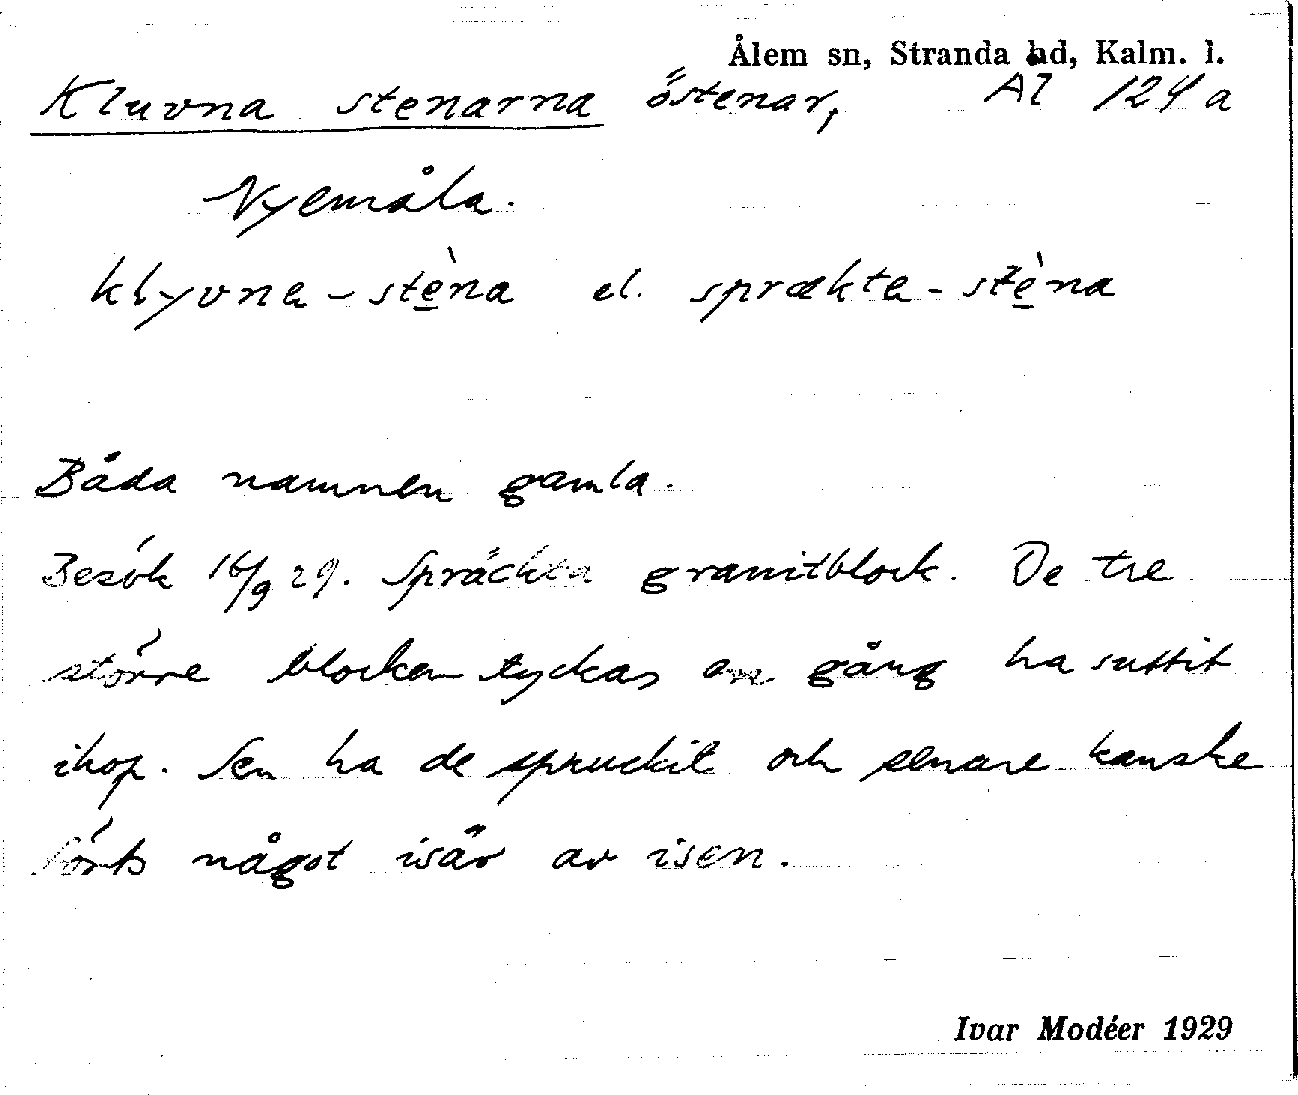 Ålem sn, Stranda hd, Kalm. l.
Kluvna stenarna östenar, Al 124 a
Nyemåla.
klyvna-stèna el. sprækta-stèna
Båda namnen gamla.
Besök 16/9 29. Spräckta granitblock. De tre
större blocken tyckas en gång ha suttit
ihop. Sen ha de spruckit och senare kanske
förts något isär av isen.
Ivar Modéer 1929